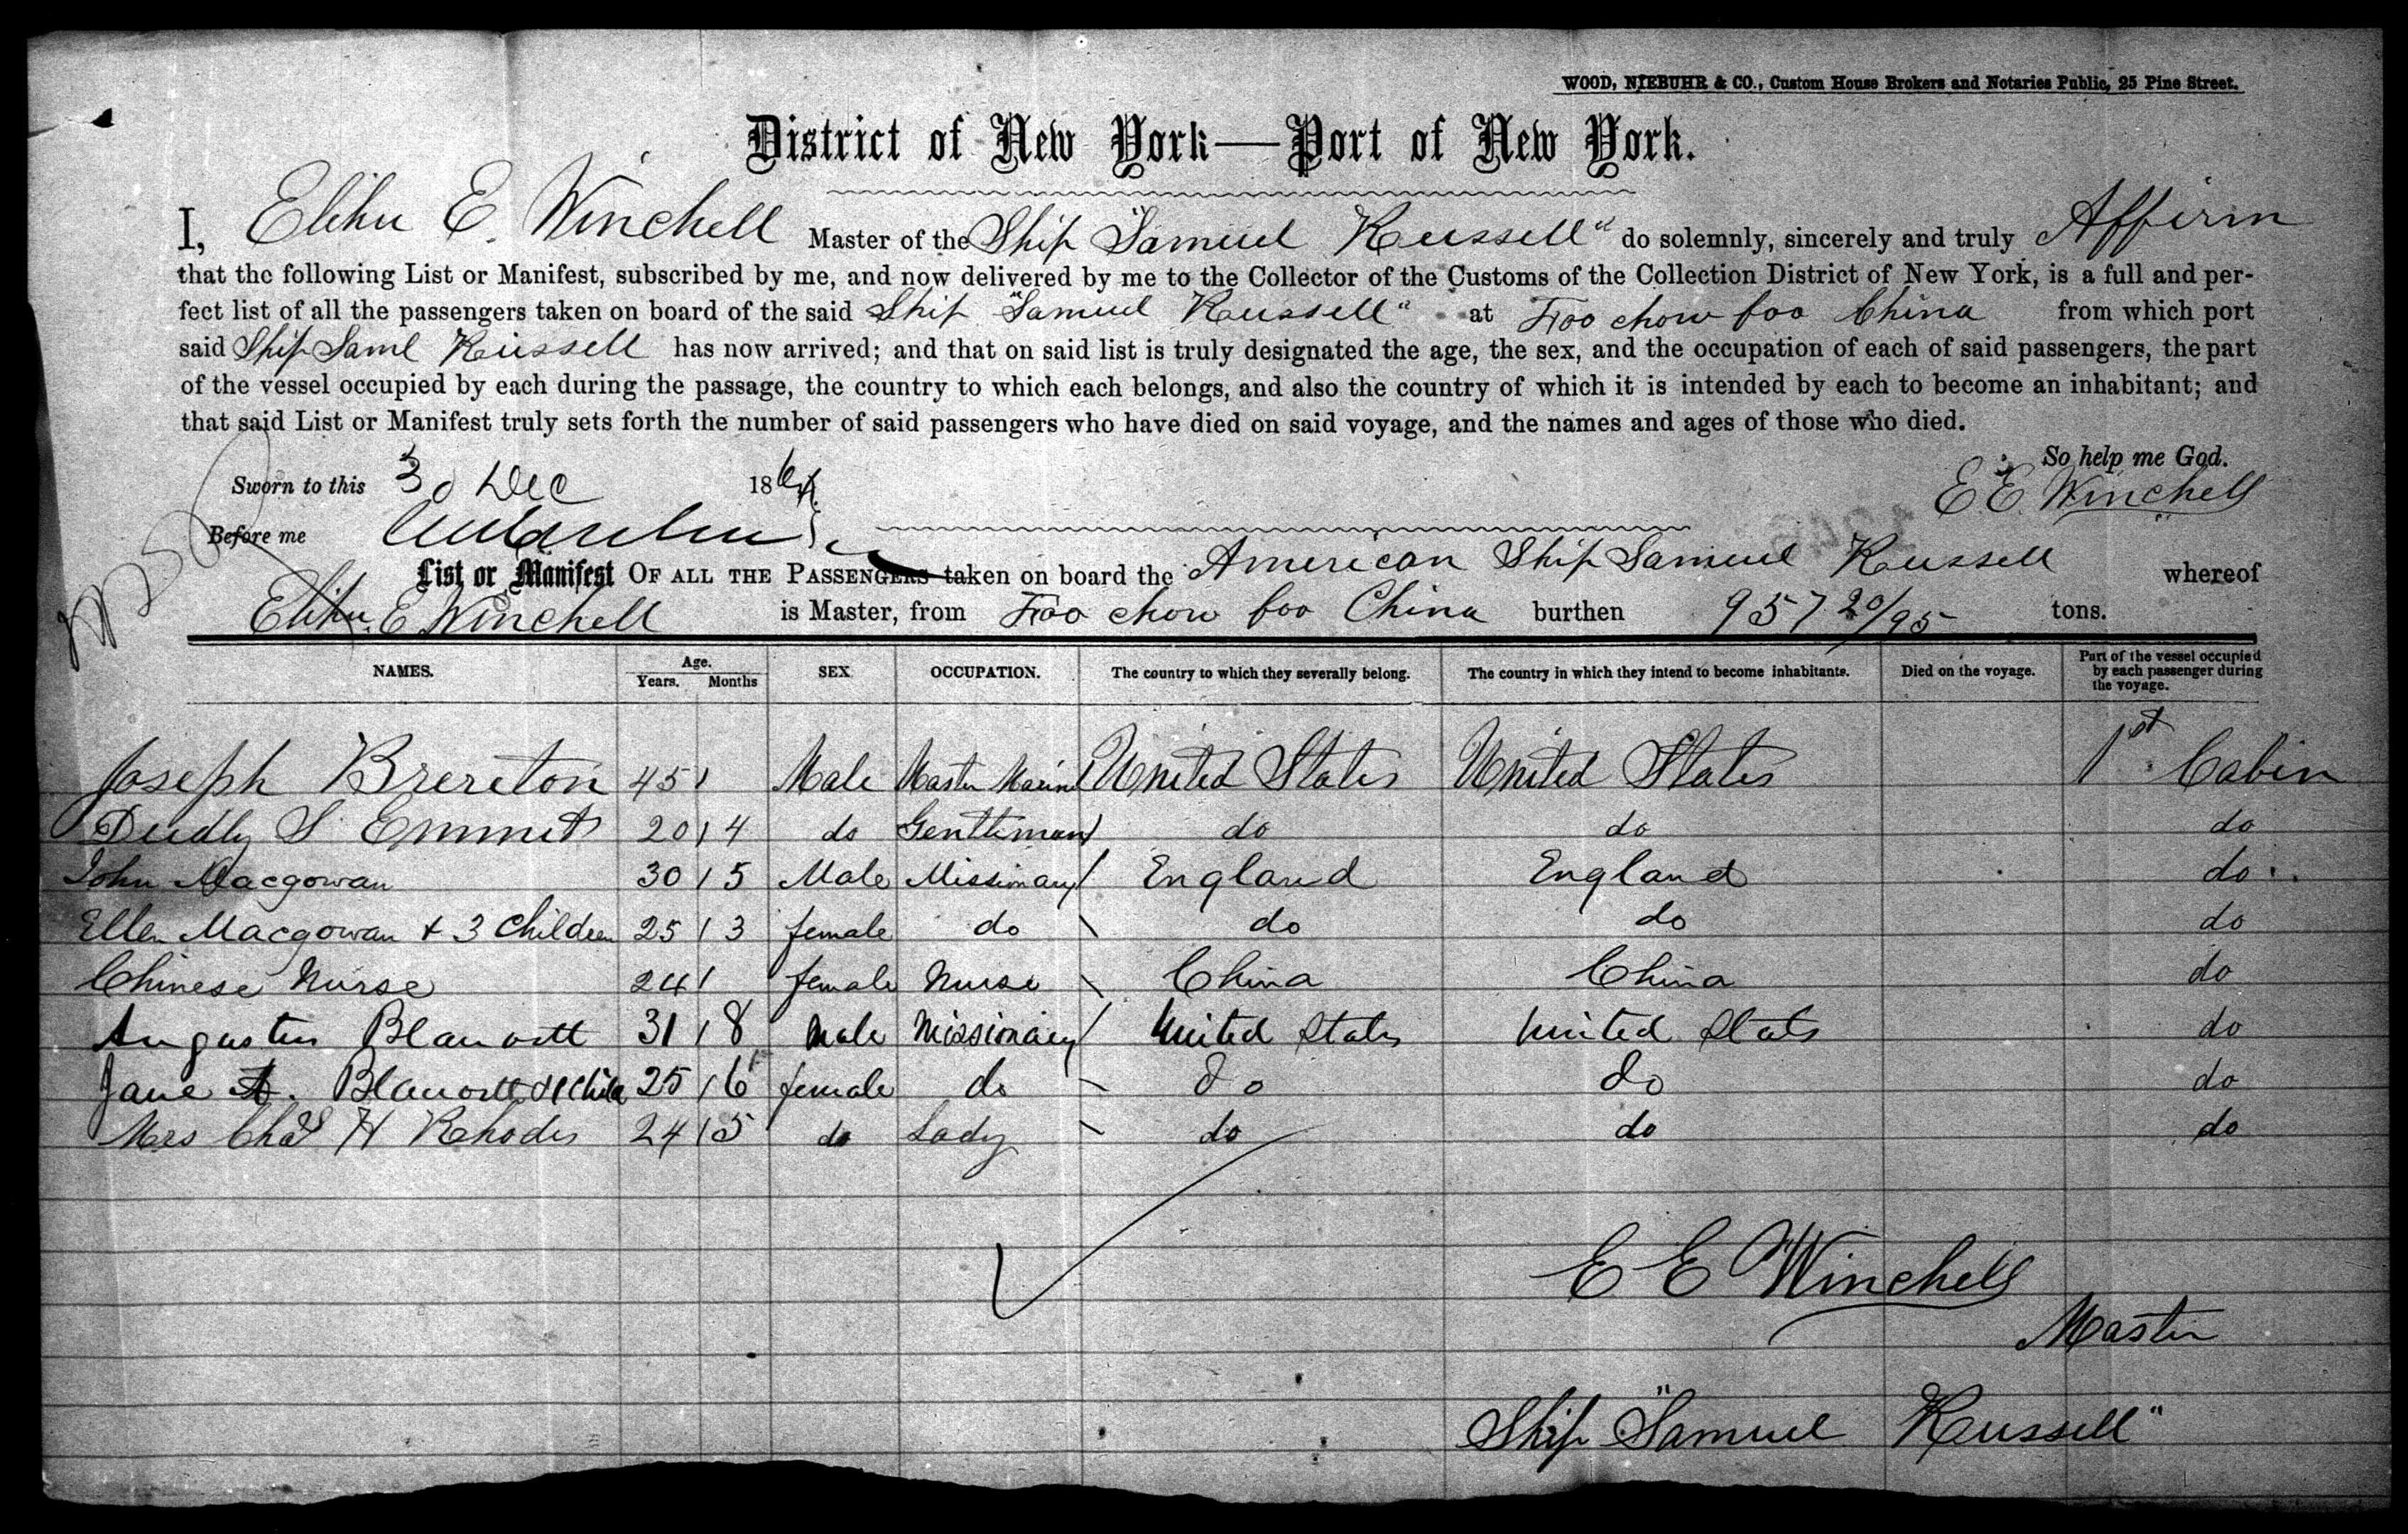 WOOD, NIEBUHR & CO., Custom House Brokers and Notaries Public, 25 Pine Street.
District of New York—Port of New York.
I, Elihu E. Winchell Master of the Ship "Samuel Russell" do solemnly, sincerely and truly Affirm
that the following List or Manifest, subscribed by me, and now delivered by me to the Collector of the Customs of the Collection District of New York, is a full and per-
fect list of all the passengers taken on board of the said Ship "Samuel Russell" at Foo chow foo China from which port
said Ship Saml Russell has now arrived; and that on said list is truly designated the age, the sex, and the occupation of each of said passengers, the part
of the vessel occupied by each during the passage, the country to which each belongs, and also the country of which it is intended by each to become an inhabitant; and
that said List or Manifest truly sets forth the number of said passengers who have died on said voyage, and the names and ages of those who died.
So help me God.
Sworn to this 30 Dec 1864.
E E Winchell
Before me
List or Manifest OF ALL THE PASSENGERS taken on board the American Ship Samuel Russell whereof
Elihu E Winchell is Master, from Foo chow foo China burthen 957 20/95 tons.
NAMES. Age. Years. Months SEX OCCUPATION. The country to which they severally belong. The country in which they intend to become inhabitants. Died on the voyage. Part of the vessel occupied by each passenger during the voyage.
Joseph Brereton 45 / Male Master Marine United States United States 1st Cabin
Dudly S Emmet 20 / 4 do Gentleman / do do do
John Macgowan 30 / 5 Male Missionary / England England do
Ellen Macgowan + 3 Children 25 / 3 female do \ do do do
Chinese Nurse 24 / female Nurse \ China China do
Augustus Blauvelt 31 / 8 Male Missionary / United States United Stats do
Jane A. Blauvelt & 1 Child 25 / 6 female do \ do do do
Mrs Chas H Rhodes 24 / 5 do Lady \ do do do
E E Winchell
Master
Ship "Samuel Russell"